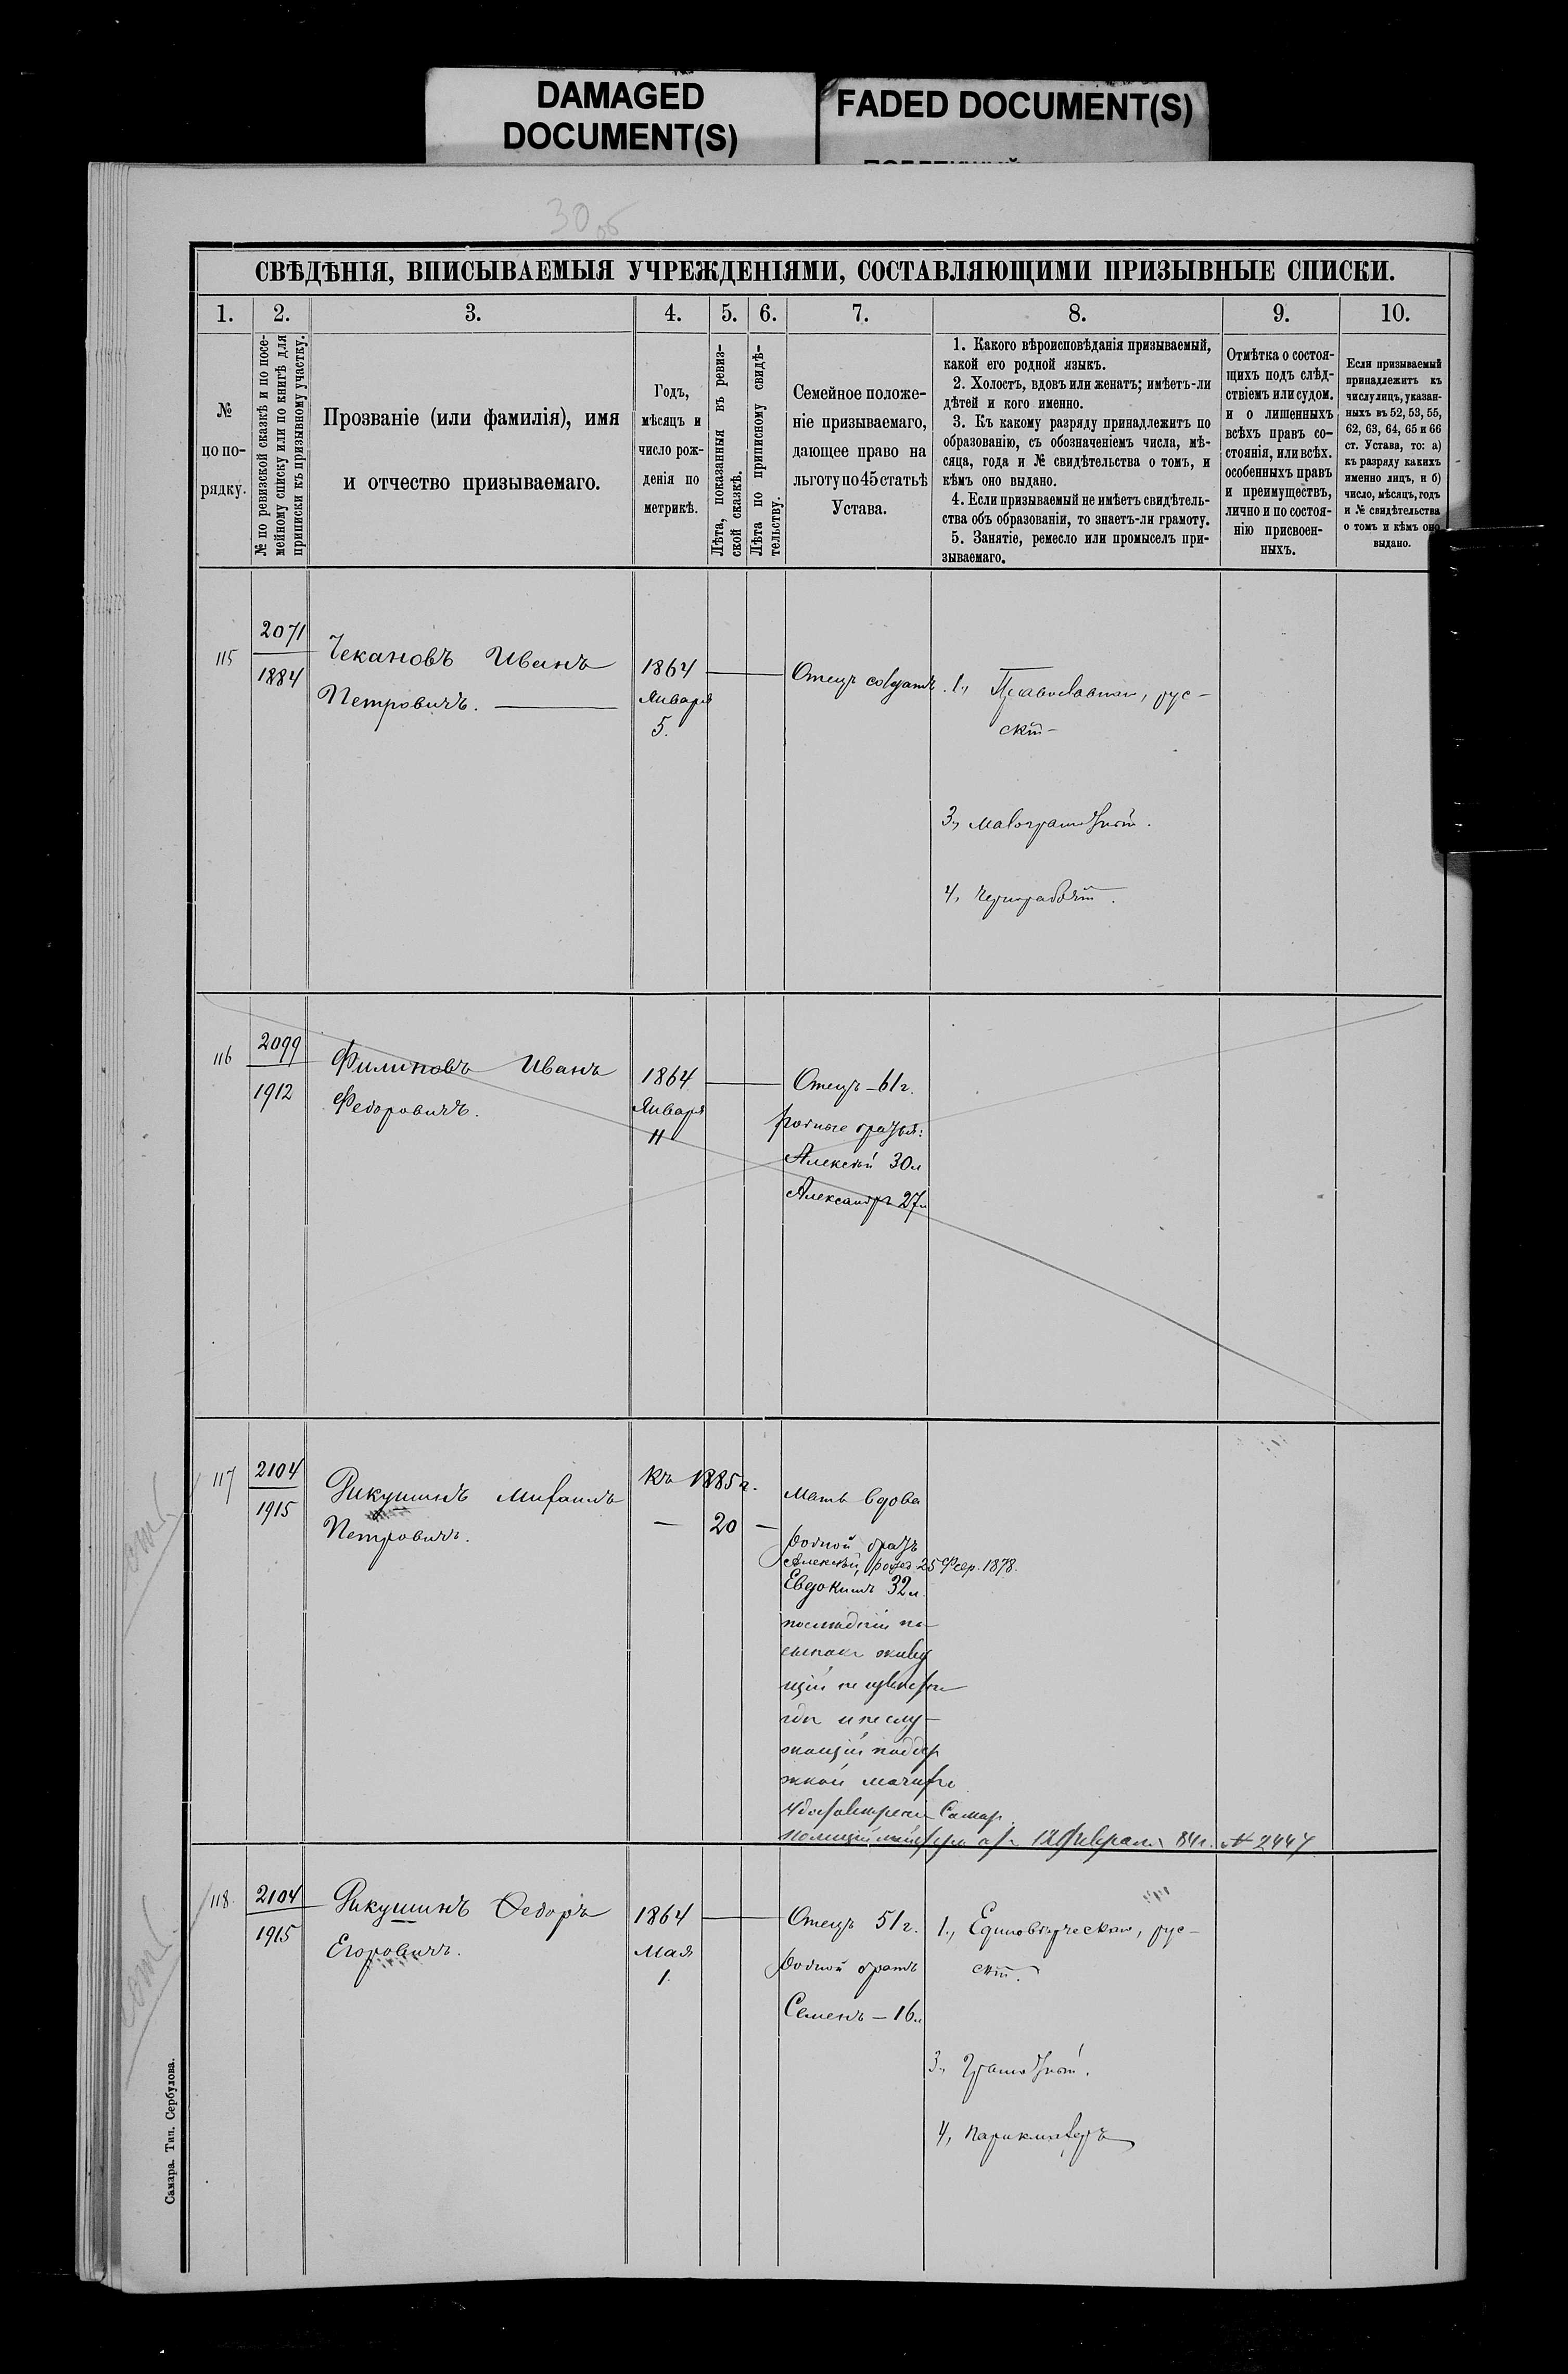 DAMAGED
DOCUMENT(S)
FADED DOCUMENT(S)
30 об
СВѢДѢНІЯ, ВПИСЫВАЕМЫЯ УЧРЕЖДЕНІЯМИ, СОСТАВЛЯЮЩИМИ ПРИЗЫВНЫЕ СПИСКИ.
1. 2. 3. 4. 5. 6. 7. 8. 9. 10.
№
по по-
рядку.
№ по ревизской сказкѣ и по посе-
мейному списку или по книгѣ для
приписки къ призывному участку.
Прозваніе (или фамилія), имя
и отчество призываемаго.
Годъ,
мѣсяцъ и
число рож-
денія по
метрикѣ.
Лѣта, показанныя въ ревиз-
ской сказкѣ.
Лѣта по приписному свидѣ-
тельству.
Семейное положе-
ніе призываемаго,
дающее право на
льготу по 45 статьѣ
Устава.
1. Какого вѣроисповѣданія призываемый,
какой его родной языкъ.
2. Холостъ, вдовъ или женатъ; имѣетъ-ли
дѣтей и кого именно.
3. Къ какому разряду принадлежитъ по
образованію, съ обозначеніемъ числа, мѣ-
сяца, года и № свидѣтельства о томъ, и
кѣмъ оно выдано.
4. Если призываемый не имѣетъ свидѣтель-
ства объ образованіи, то знаетъ-ли грамоту.
5. Занятіе, ремесло или промыселъ при-
зываемаго.
Отмѣтка о состоя-
щихъ подъ слѣд-
ствіемъ или судом.
и о лишенныхъ
всѣхъ правъ со-
стоянія, или всѣх.
особенныхъ правъ
и преимуществъ,
лично и по состоя-
нію присвоен-
ныхъ.
Если призываемый
принадлежитъ къ
числу лицъ, указан-
ныхъ въ 52, 53, 55,
62, 63, 64, 65 и 66
ст. Устава, то: а)
къ разряду какихъ
именно лицъ, и б)
число, мѣсяцъ, годъ
и № свидѣтельства
о томъ и кѣмъ оно
выдано.
115
2071
1884
Чекановъ Иванъ
Петровичъ.
1864
Января
5.
Отецъ солдатъ.
1., Православный, рус-
скій
3., малограмотный.
4, чернорабочій.
116
2099
1912
Филиповъ Иванъ
Федоровичъ.
1864
Января
11
Отецъ - 61 г.
родные братья:
Алексѣй 30 л
Александръ 27 л
117
2104
1915
Рикушинъ Михаилъ
Петровичъ.
къ 1885 г.
— 20 —
Мать вдова
родной братъ
Алексѣй, рожд. 25 Февр. 1878.
Евдокимъ 32 л.
живу
щій
и не слу-
жащій поддер
жкой
Самар.
Февраля 84 г. № 2447
118
2104
1915
Рикушинъ Федоръ
Егоровичъ.
1864
Мая
1.
Отецъ 51 г.
родной братъ
Семенъ - 16 л
1., Единовѣрческаго, рус-
скій.
3., Грамотный.
4, парикмахеръ
Самара. Тип. Сербулова.